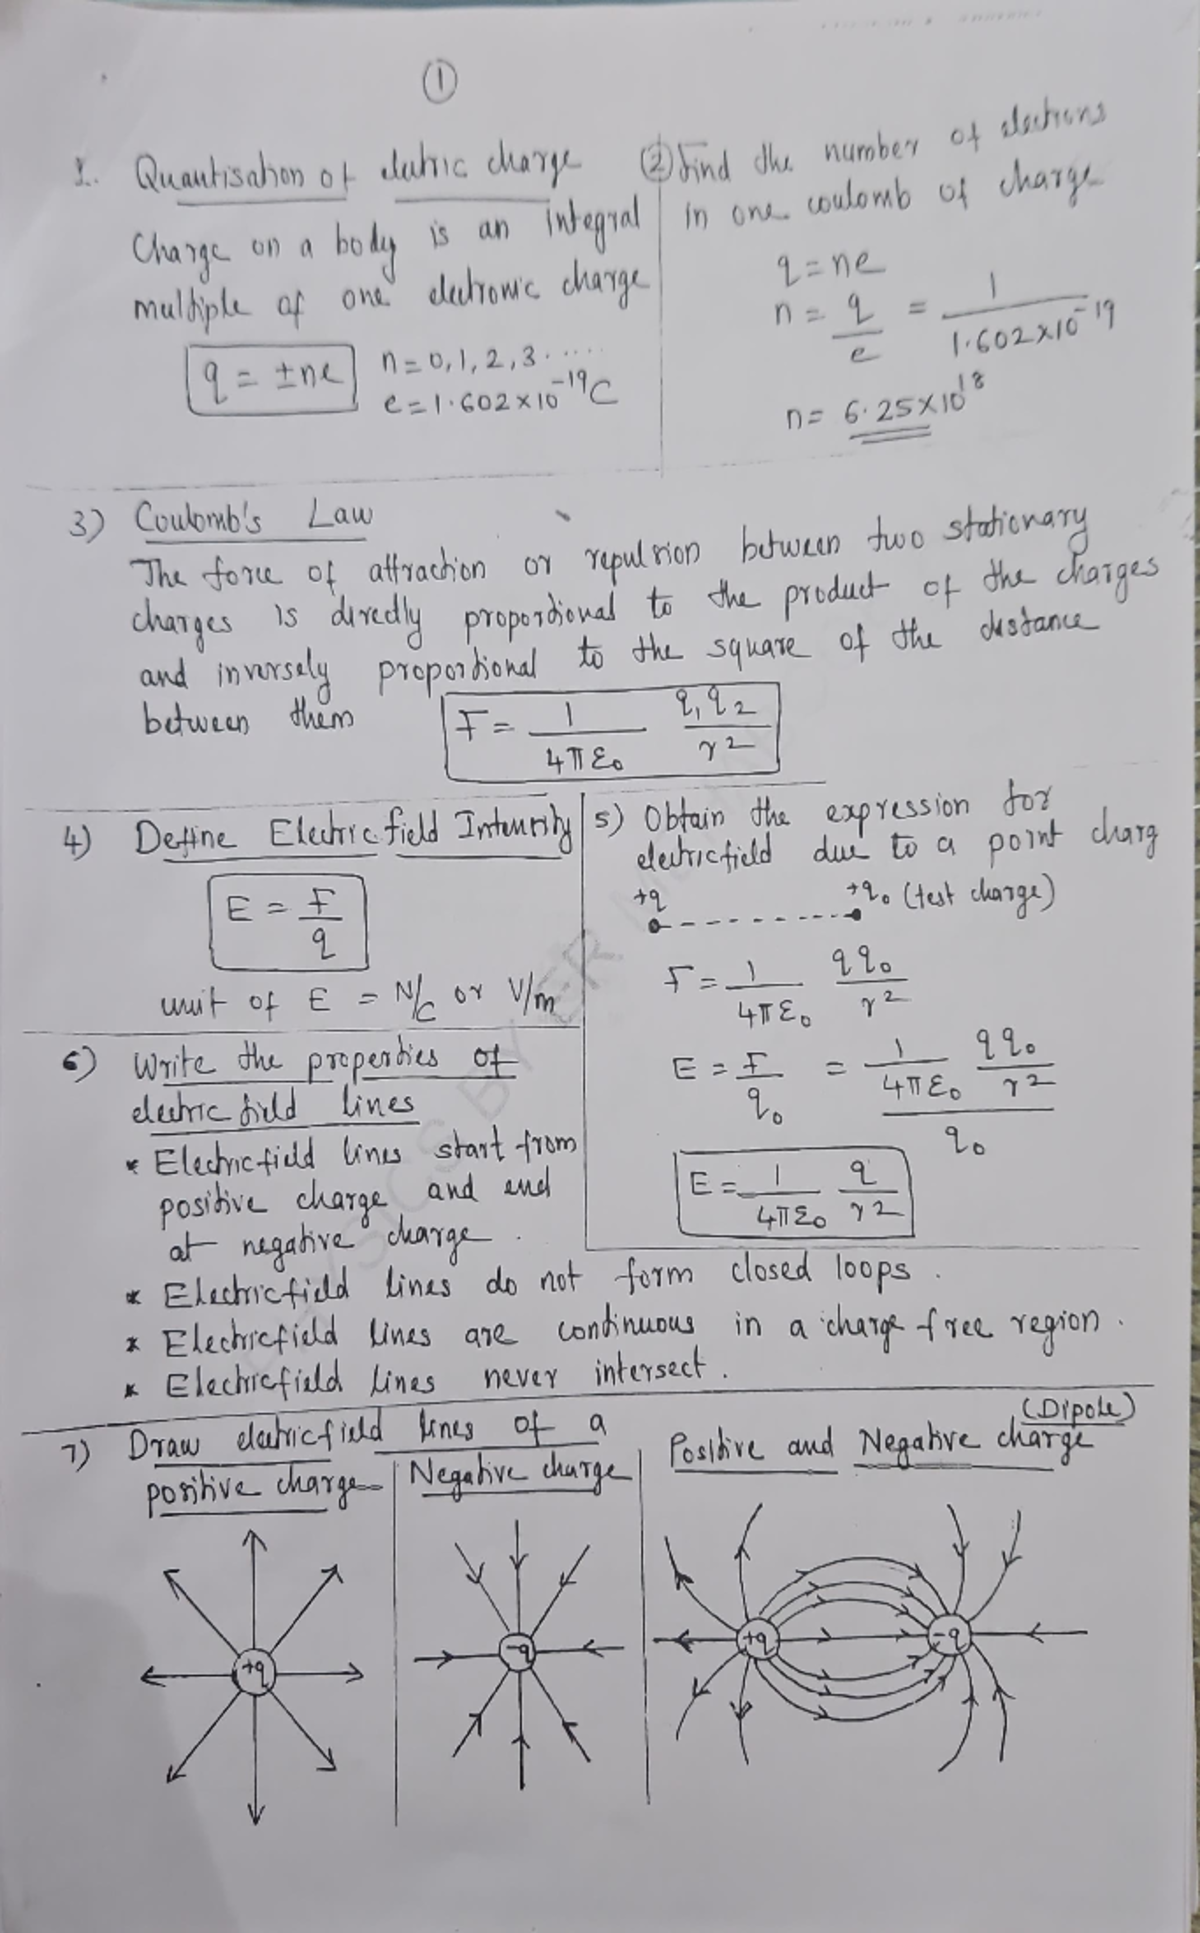 ①
1. Quantisation of electric charge
Charge on a body is an integral
multiple of one electronic charge
q = ±ne n = 0, 1, 2, 3 ......
e = 1.602 × 10⁻¹⁹ C
② find the number of electrons
in one coulomb of charge
q = ne
n = q/e = 1/1.602×10⁻¹⁹
n = 6.25×10¹⁸
3) Coulomb's Law
The force of attraction or repulsion between two stationary
charges is directly proportional to the product of the charges
and inversely proportional to the square of the distance
between them F = 1/4πε₀ q₁q₂/r²
4) Define Electric field Intensity
E = F/q
unit of E = N/C or V/m
5) Obtain the expression for
electric field due to a point charg
+q +q₀ (test charge)
F = 1/4πε₀ qq₀/r²
E = F/q₀ = 1/4πε₀ qq₀/r² / q₀
E = 1/4πε₀ q/r²
6) Write the properties of
electric field lines
* Electricfield lines start from
positive charge and end
at negative charge .
* Electricfield lines do not form closed loops .
* Electricfield lines are continuous in a charge free region .
* Electricfield lines never intersect .
7) Draw electricfield lines of a
positive charge
Negative charge
(Dipole)
Positive and Negative charge
+q
-q
+q -q